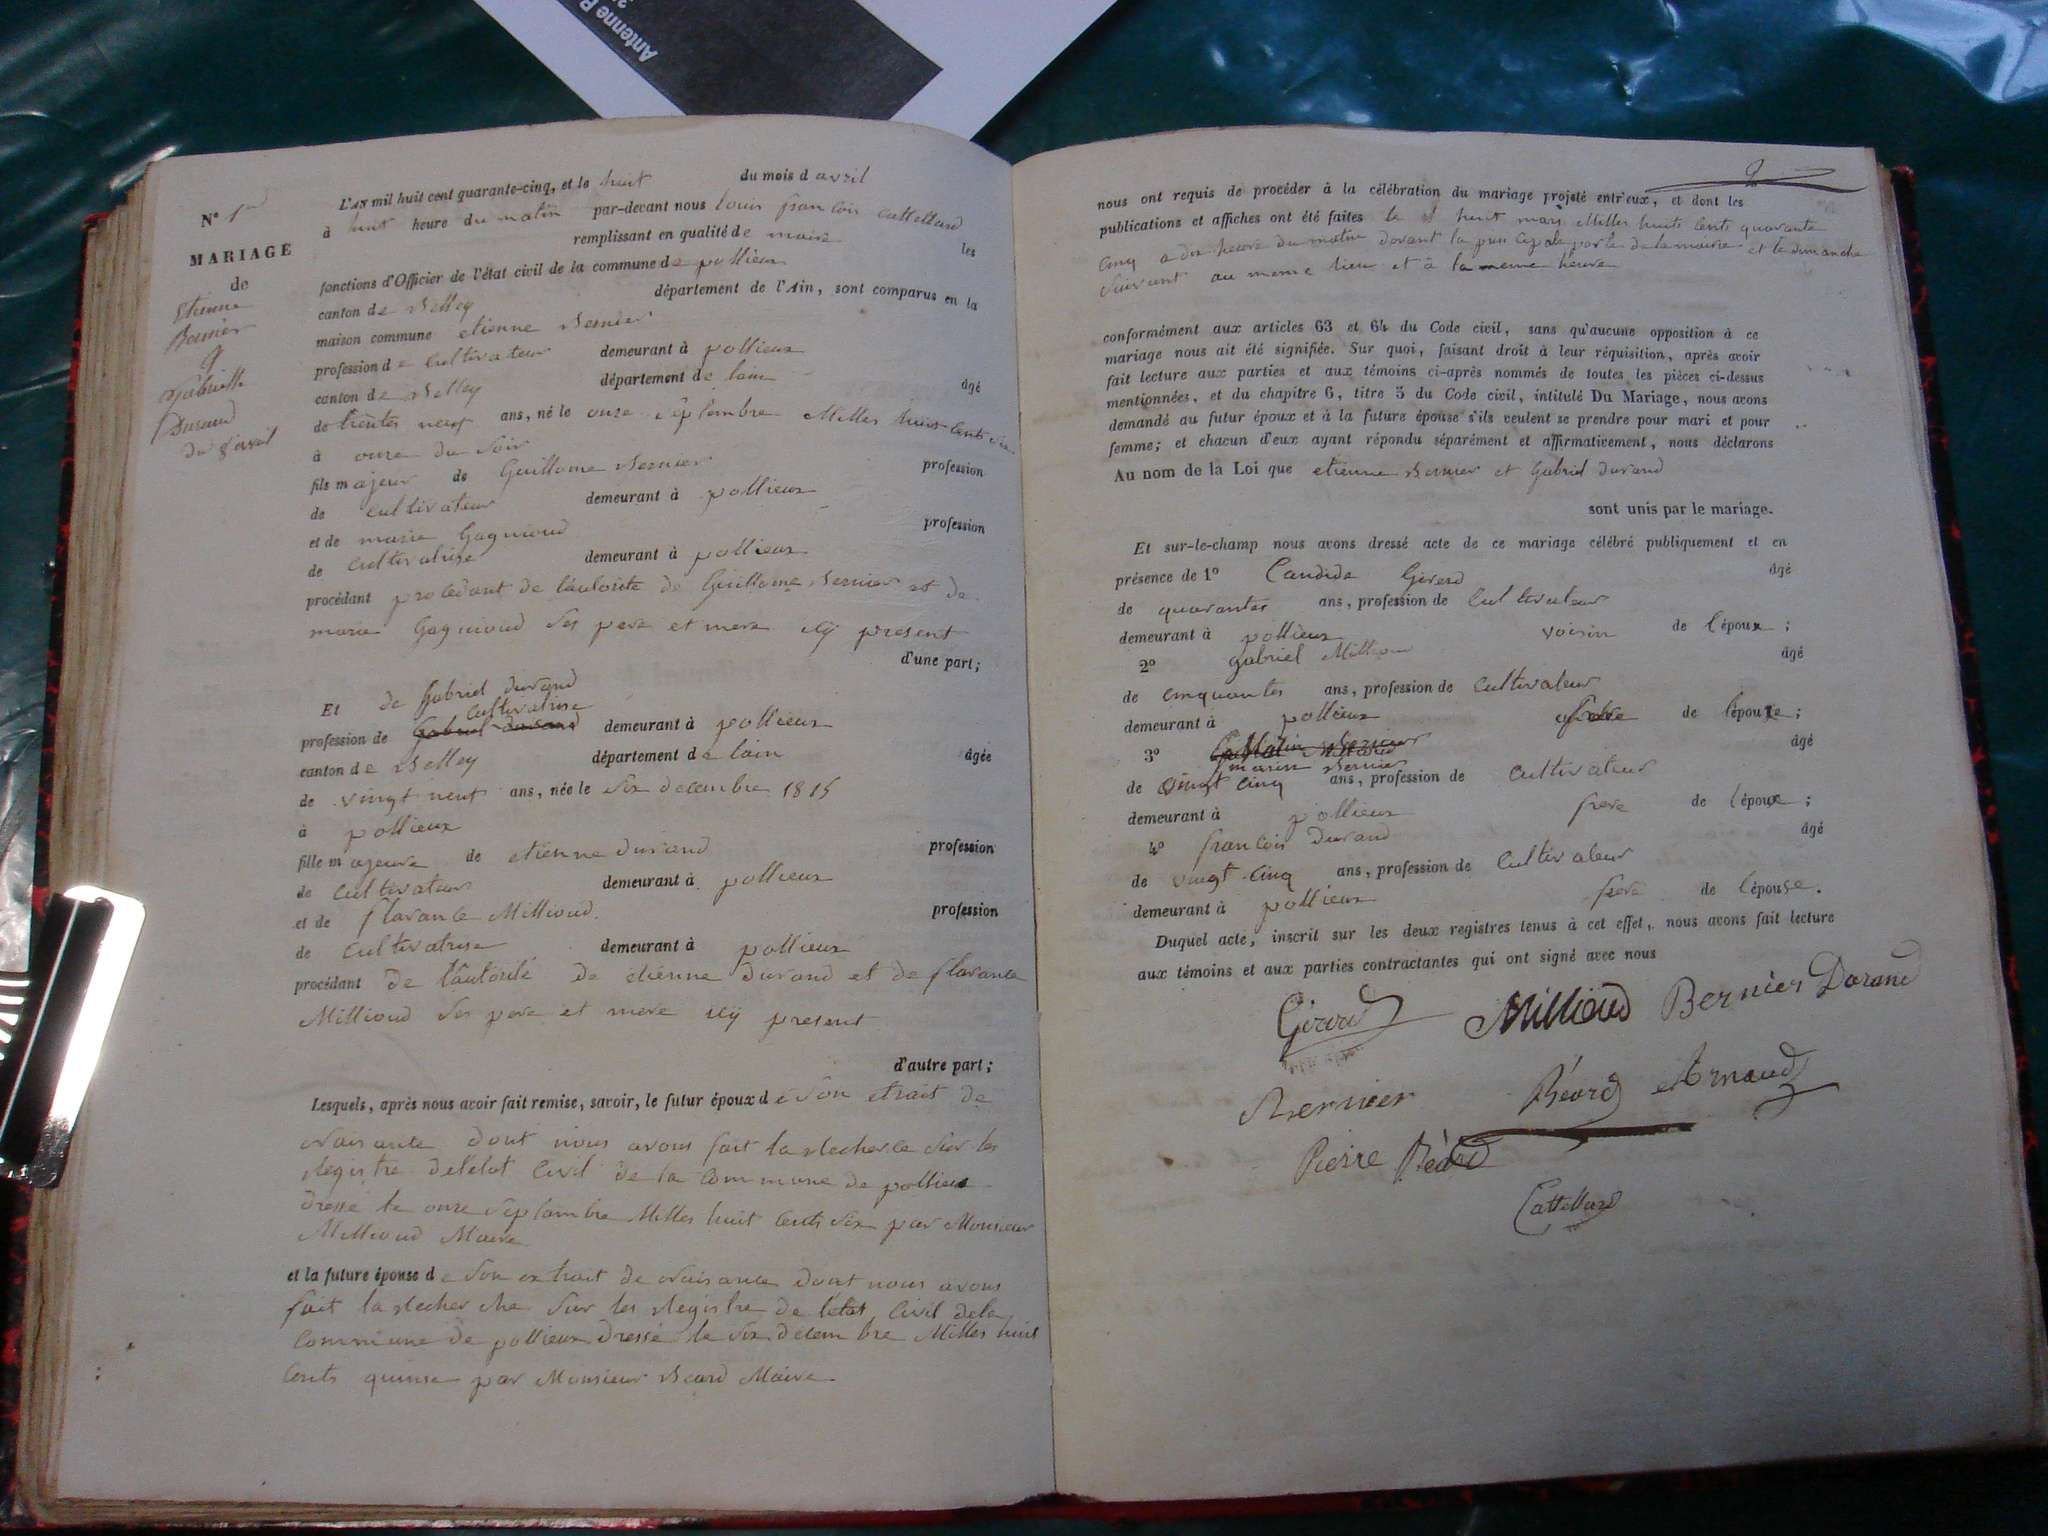 Antenne
N° 1er
MARIAGE
de
Etienne
Bernier
et
Gabrielle
Durand
du 8 avril
L'AN mil huit cent quarante-cinq, et le huit du mois d avril
à huit heure du matin par-devant nous louis françois Cattelland
remplissant en qualité de maire les
fonctions d'Officier de l'état civil de la commune de pollieux
canton de Belley département de l'Ain, sont comparus en la
maison commune etienne Bernier
profession de Cultivateur demeurant à pollieux
canton de Belley département de lain âgé
de trentes neuf ans, né le onze Septembre Milles huit Cents Six
à onze du Soir
fils majeur de Guillome Bernier profession
de cultivateur demeurant à pollieux
et de marie Gagnioud profession
de Cultivatrise demeurant à pollieux
procédant procédant de lautorité de Guillome Bernier et de
marie Gagnioud Ses pere et mere icy present
d'une part;
Et de Gabriel durand
cultivatrise
profession de Gabriel durand demeurant à pollieux
canton de Belley département de lain âgée
de vingt neuf ans, née le Six decembre 1815
à pollieux
fille majeure de etienne durand profession
de Cultivateur demeurant à pollieux
et de flarance Millioud profession
de Cultivatrise demeurant à pollieux
procédant de lautorité de etienne durand et de flarance
Millioud Ses pere et mere icy present
d'autre part;
Lesquels, après nous avoir fait remise, savoir, le futur époux de Son etrait de
naisante dont nous avons fait la Recherce Sur les
Registre deletat Civil de la Commune de pollieux
Dressé le onze Septembre Milles huit Cents Six par Monsieur
Millioud Maire
et la future épouse de Son extrait de naisance dont nous avons
fait la Recherche Sur les Registre de létat Civil dela
Commune de pollieux Dressé le Six decembre Milles huit
Cents quinse par Monsieur Beard Maire
2
nous ont requis de procéder à la célébration du mariage projeté entr'eux, et dont les
publications et affiches ont été faites le huit mars Milles huits Cents quarante
Cinq a dix heure du matin devant la principale porte de la mairie et le dimanche
Suivant au meme lieu et à la meme heure
conformément aux articles 63 et 64 du Code civil, sans qu'aucune opposition à ce
mariage nous ait été signifiée. Sur quoi, faisant droit à leur réquisition, après avoir
fait lecture aux parties et aux témoins ci-après nommés de toutes les pièces ci-dessus
mentionnées, et du chapitre 6, titre 5 du Code civil, intitulé Du Mariage, nous avons
demandé au futur époux et à la future épouse s'ils veulent se prendre pour mari et pour
femme; et chacun d'eux ayant répondu séparément et affirmativement, nous déclarons
Au nom de la Loi que etienne Bernier et Gabriel Durand
sont unis par le mariage.
Et sur-le-champ nous avons dressé acte de ce mariage célébré publiquement et en
présence de 1° Candide Gererd âgé
de quarantes ans, profession de Cultivateur
demeurant à pollieux voisin de l'époux;
2° gabriel Millioud âgé
de cinquantes ans, profession de Cultivateur
demeurant à pollieux de l'épouxe;
3° Bernier âgé
marin Bernier
de vingt cinq ans, profession de Cultivateur
demeurant à pollieux frere de l'époux;
4° françois Durand âgé
de vingt cinq ans, profession de Cultivateur
demeurant à pollieux frere de l'épouse.
Duquel acte, inscrit sur les deux registres tenus à cet effet, nous avons fait lecture
aux témoins et aux parties contractantes qui ont signé avec nous
Girard Millioud Bernier Durand
Bernier Béard Arnaud
Pierre Béard
Cattelland